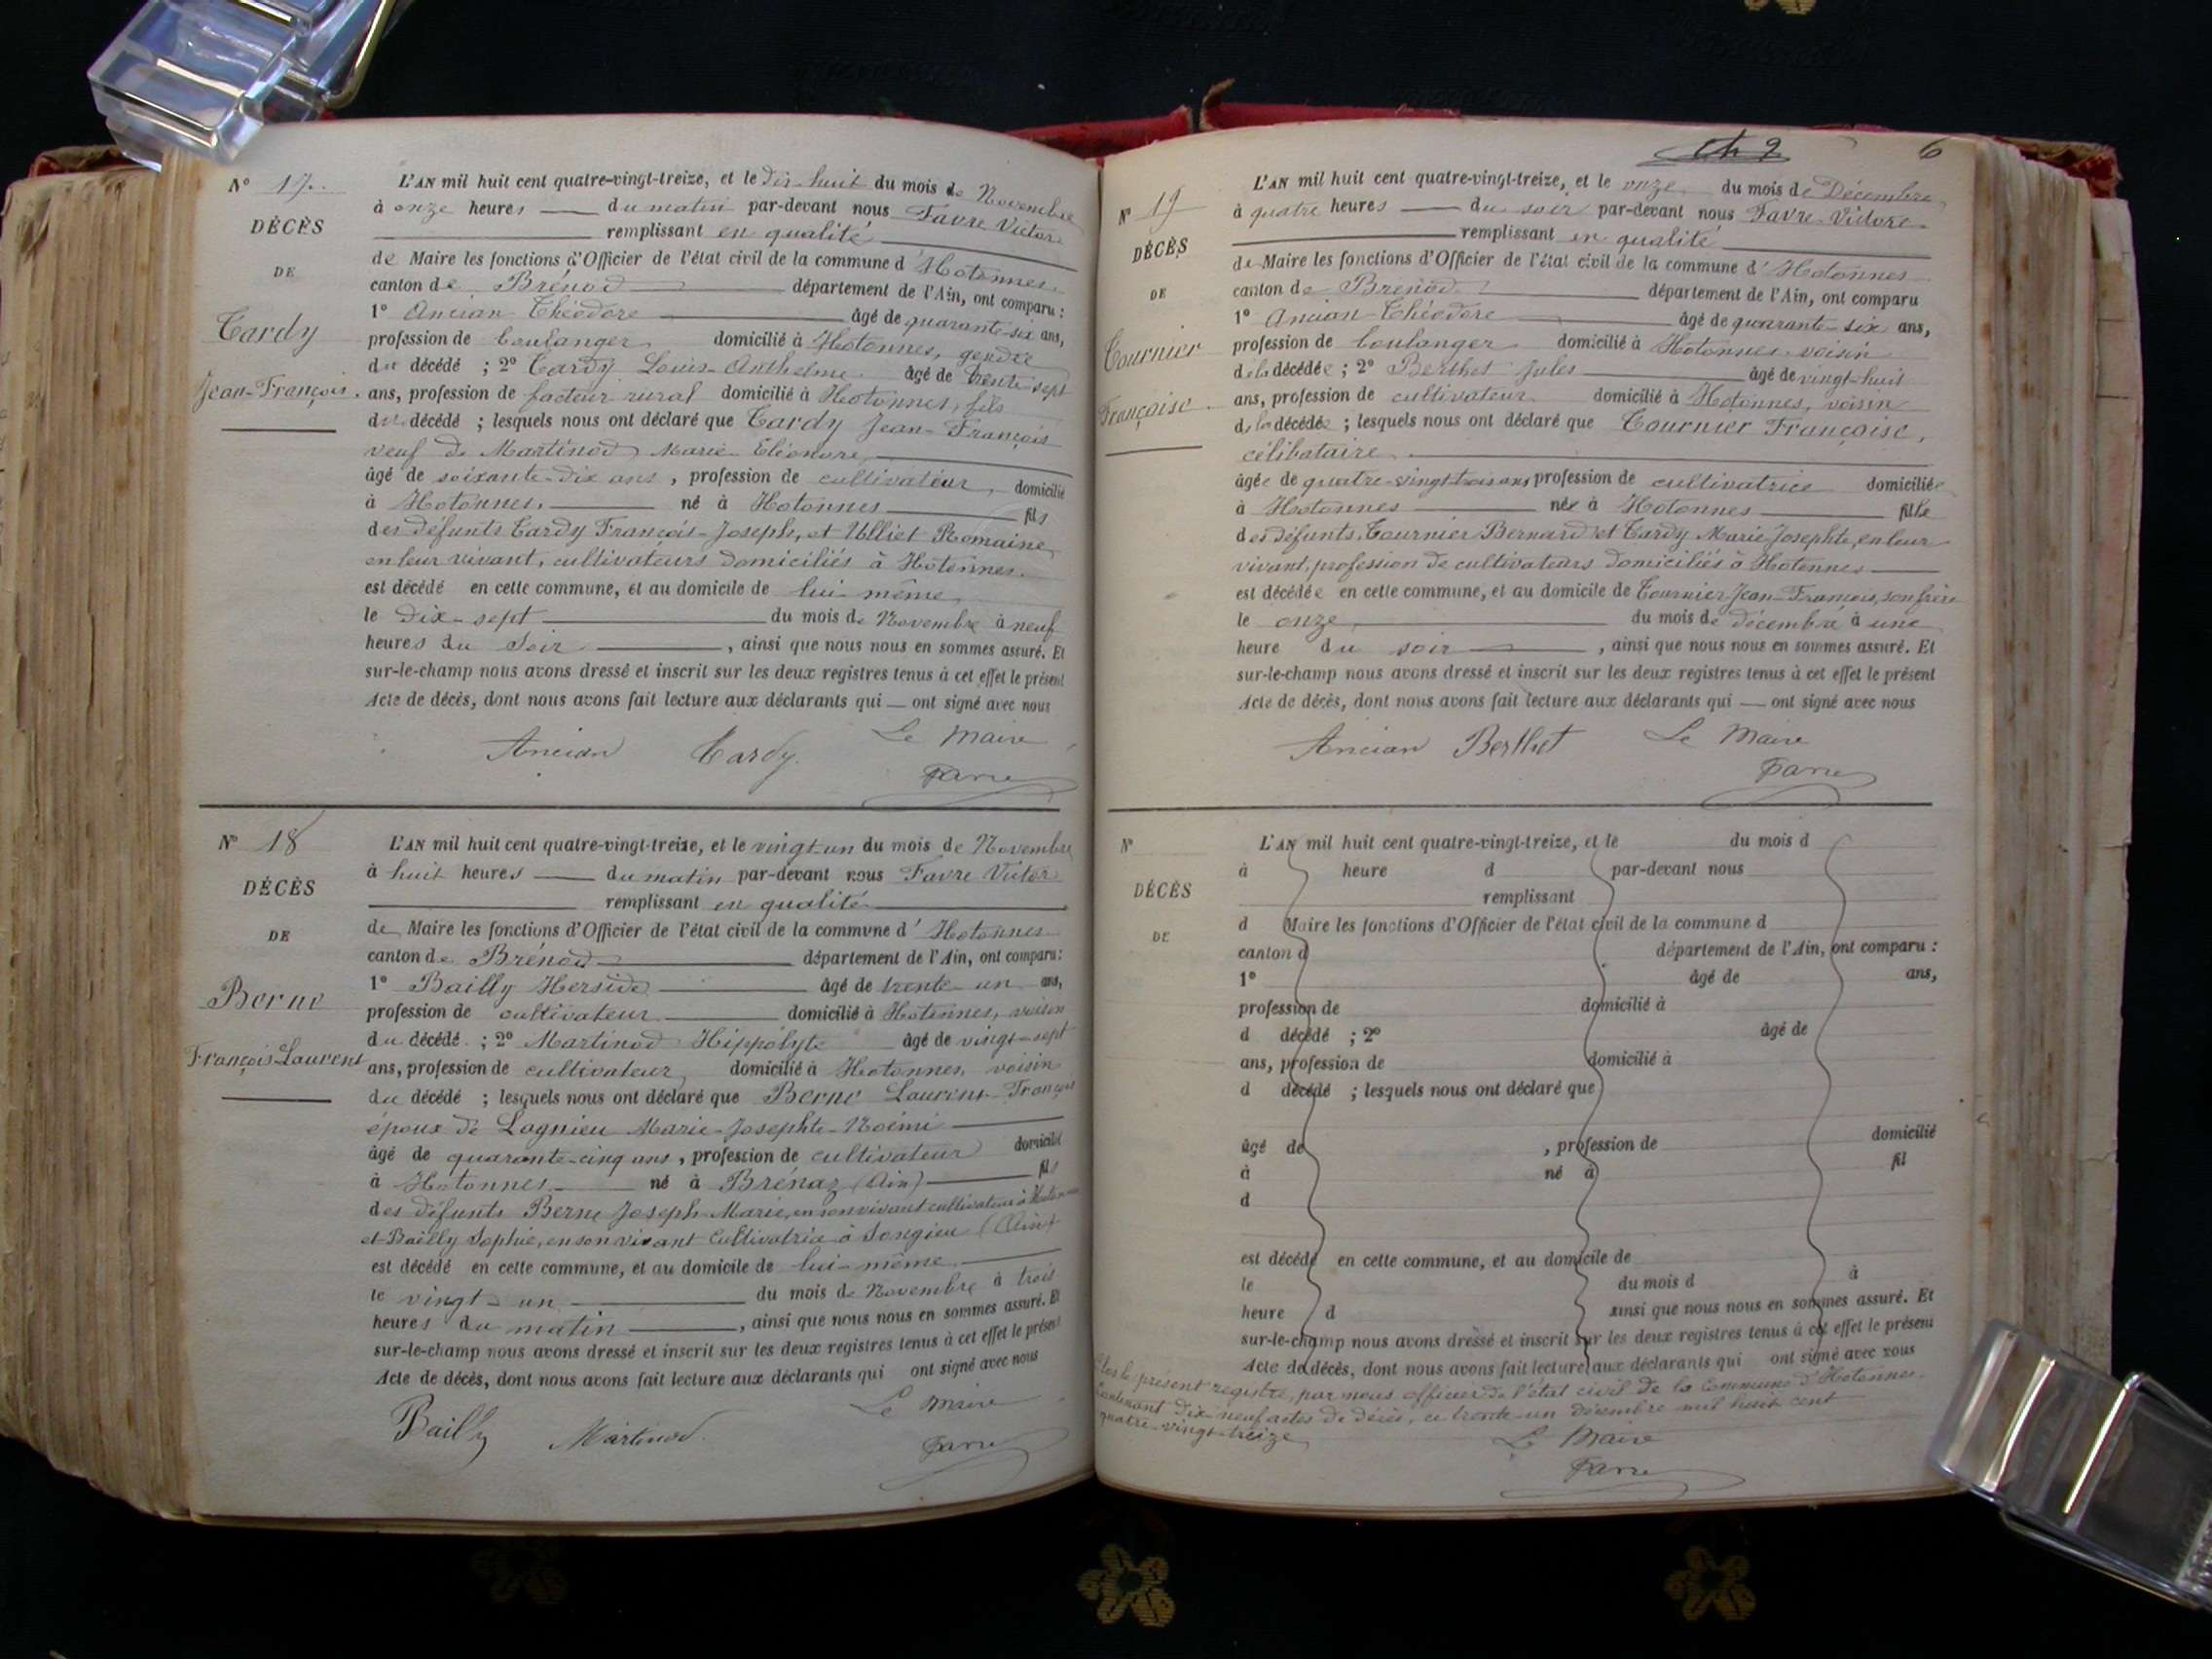 N° 17.
DÉCÈS
DE
Tardy
Jean-François.
L'AN mil huit cent quatre-vingt-treize, et le dix-huit du mois de Novembre
à onze heures — du matin par-devant nous Favre Victor
remplissant en qualité
de Maire les fonctions d'Officier de l'état civil de la commune d'Hotonnes
canton de Brénod département de l'Ain, ont comparu :
1° Ancian Théodore âgé de quarante-six ans,
profession de boulanger domicilié à Hotonnes, gendre
du décédé ; 2° Tardy Louis-Anthelme âgé de trente-sept
ans, profession de facteur rural domicilié à Hotonnes, fils
du décédé ; lesquels nous ont déclaré que Tardy Jean-François
veuf de Martinod Marie Eléonore,
âgé de soixante-dix ans, profession de cultivateur, domicilié
à Hotonnes, né à Hotonnes fils
des défunts Tardy François-Joseph, et Ulliet Romaine
en leur vivant, cultivateurs domiciliés à Hotonnes.
est décédé en cette commune, et au domicile de lui-même,
le dix-sept du mois de Novembre à neuf
heures du Soir , ainsi que nous nous en sommes assuré. Et
sur-le-champ nous avons dressé et inscrit sur les deux registres tenus à cet effet le présent
Acte de décès, dont nous avons fait lecture aux déclarants qui — ont signé avec nous
Ancian Tardy. Le Maire
Favre
N° 18
DÉCÈS
DE
Berne
François-Laurent
L'AN mil huit cent quatre-vingt-treize, et le vingt-un du mois de Novembre
à huit heures — du matin par-devant nous Favre Victor
remplissant en qualité
de Maire les fonctions d'Officier de l'état civil de la commune d'Hotonnes
canton de Brénod département de l'Ain, ont comparu :
1° Bailly Herside âgé de trente-un ans,
profession de cultivateur domicilié à Hotonnes, voisin
du décédé ; 2° Martinod Hippolyte âgé de vingt-sept
ans, profession de cultivateur, domicilié à Hotonnes, voisin
du décédé ; lesquels nous ont déclaré que Berne Laurent-François
époux de Lagnieu Marie-Josephte-Noémi
âgé de quarante-cinq ans, profession de cultivateur domicilié
à Hotonnes né à Brénaz (Ain) fils
des défunts Berne Joseph-Marie, en son vivant cultivateur à Hotonnes
et Bailly Sophie, en son vivant Cultivatrice à Songieu (Ain)
est décédé en cette commune, et au domicile de lui-même
le vingt-un du mois de Novembre à trois
heures du matin , ainsi que nous nous en sommes assuré. Et
sur-le-champ nous avons dressé et inscrit sur les deux registres tenus à cet effet le présent
Acte de décès, dont nous avons fait lecture aux déclarants qui ont signé avec nous
Bailly Martinod. Le Maire
Favre
6
N° 19
DÉCÈS
DE
Tournier
Françoise.
L'AN mil huit cent quatre-vingt-treize, et le onze du mois de Décembre
à quatre heures — du soir par-devant nous Favre Victore
remplissant en qualité
de Maire les fonctions d'Officier de l'état civil de la commune d'Hotonnes
canton de Brénod département de l'Ain, ont comparu
1° Ancian Théodore âgé de quarante-six ans,
profession de boulanger domicilié à Hotonnes voisin
de la décédée ; 2° Berthet Jules âgé de vingt-huit
ans, profession de cultivateur domicilié à Hotonnes, voisin
de la décédée ; lesquels nous ont déclaré que Tournier Françoise,
célibataire
âgée de quatre-vingt-trois ans profession de cultivatrice domiciliée
à Hotonnes née à Hotonnes fille
des défunts, Tournier Bernard et Tardy Marie-Josephte, en leur
vivant, profession de cultivateurs domiciliés à Hotonnes
est décédée en cette commune, et au domicile de Tournier Jean-François, son frère
le onze du mois de décembre à une
heure du soir , ainsi que nous nous en sommes assuré. Et
sur-le-champ nous avons dressé et inscrit sur les deux registres tenus à cet effet le présent
Acte de décès, dont nous avons fait lecture aux déclarants qui — ont signé avec nous
Ancian Berthet Le Maire
Favre
N°
DÉCÈS
DE
L'AN mil huit cent quatre-vingt-treize, et le du mois d
à heure d par-devant nous
remplissant
d Maire les fonctions d'Officier de l'état civil de la commune d
canton d département de l'Ain, ont comparu :
1° âgé de ans,
profession de domicilié à
d décédé ; 2° âgé de
ans, profession de domicilié à
d décédé ; lesquels nous ont déclaré que
âgé de , profession de domicilié
à né à fil
d
est décédé en cette commune, et au domicile de
le du mois d à
heure d ainsi que nous nous en sommes assuré. Et
sur-le-champ nous avons dressé et inscrit sur les deux registres tenus à cet effet le présent
Acte de décès, dont nous avons fait lecture aux déclarants qui ont signé avec nous
Clos le présent registre, par nous officier de l'état civil de la Commune d'Hotonnes.
Contenant Dix-neuf actes de décès, ce trente-un décembre mil huit cent
quatre-vingt-treize
Le Maire
Favre